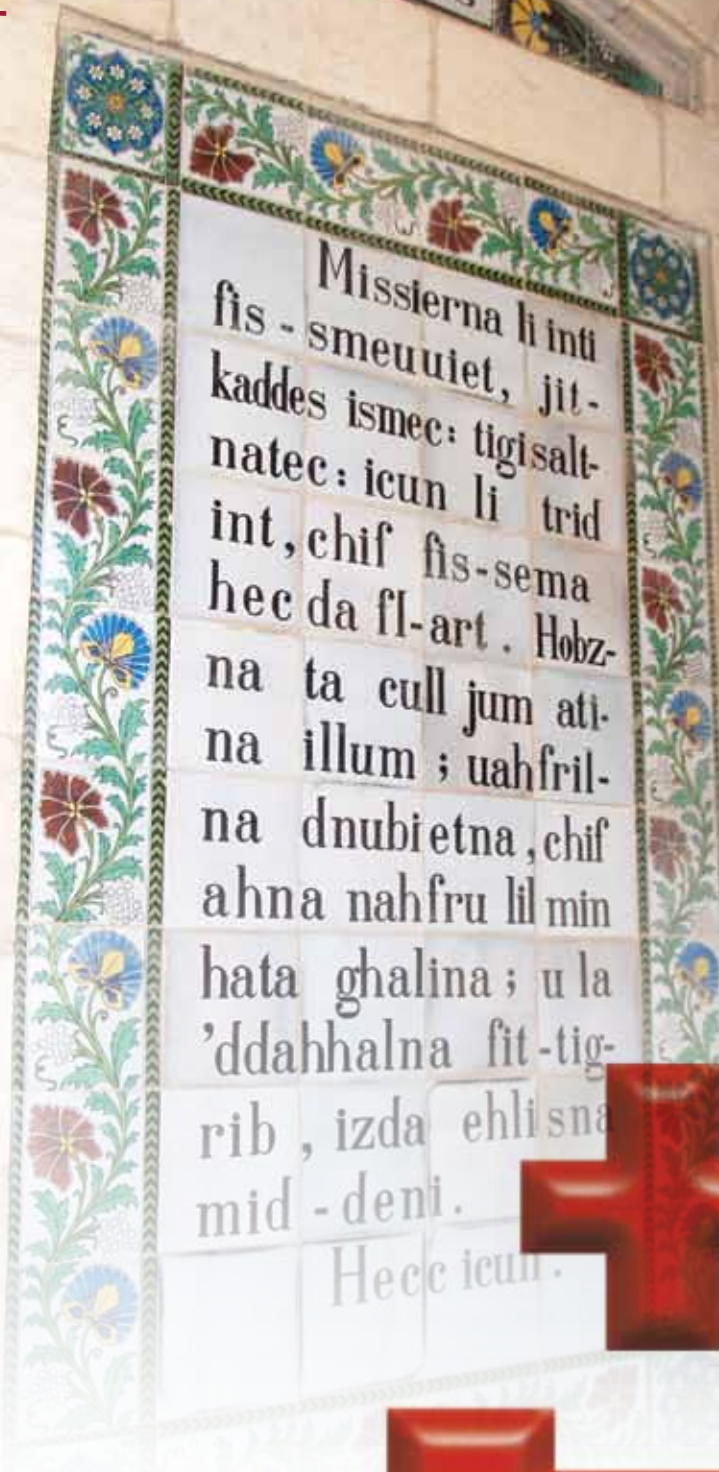 Missierna li inti
fis - smeuuiet, jit-
kaddes ismec: tigisalt-
natec: icun li trid
int, chif fis-sema
hec da fl-art. Hobz-
na ta cull jum ati-
na illum ; uahfril-
na dnubietna, chif
ahna nahfru lil min
hata ghalina ; u la
'ddahhalna fit-tig-
rib , izda ehlisna
mid - deni.
Hecc icun.